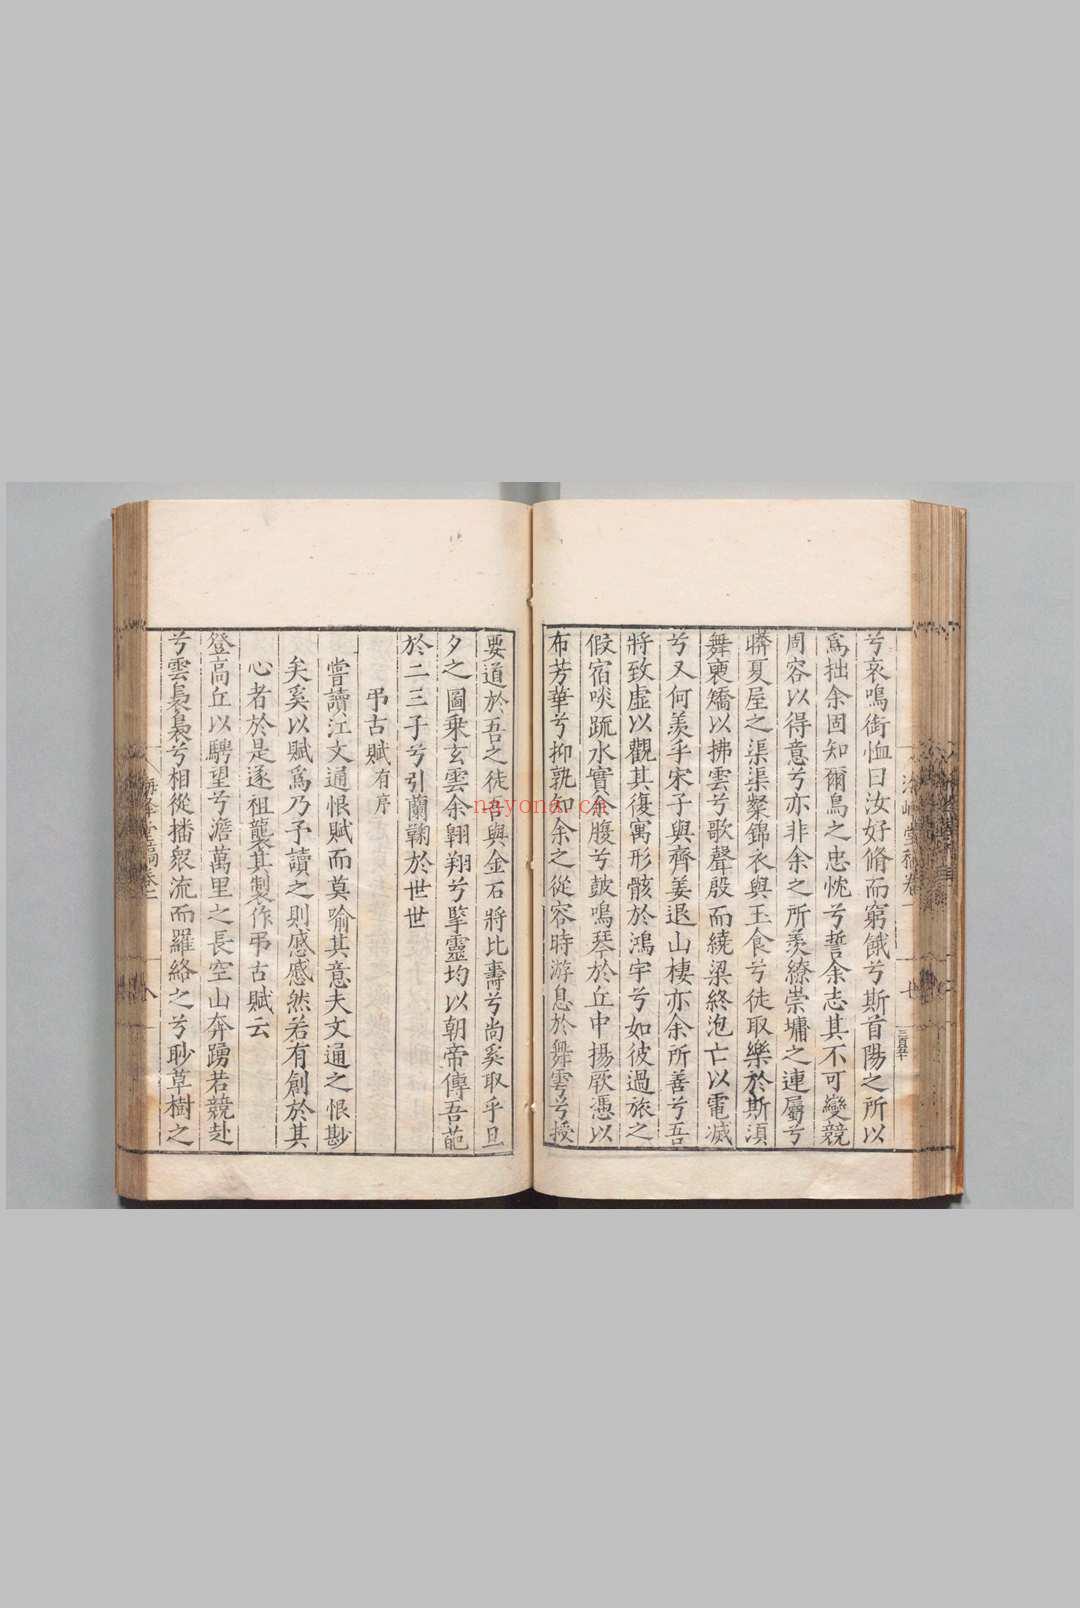 兮哀鳴銜恤曰汝好脩而窮餓兮斯首陽之所以
爲拙余固知爾鳥之忠忱兮誓余志其不可變競
周容以得意兮亦非余之所羨繚崇墉之連屬兮
躋夏屋之渠渠粲錦衣與玉食兮徒取樂於斯須
舞裛矯以拂雲兮歌聲殷而繞梁終泡亡以電滅
兮又何羨乎宋子與齊姜退山棲亦余所善兮吾
將致虛以觀其復寓形骸於鴻宇兮如彼過旅之
假宿啖䟽水實余腹兮鼓鳴琴於丘中揚厥憑以
布芳華兮抑孰知余之從容時游息於舞雩兮授
要道於吾之徒吾與金石將比壽兮尚奚取乎旦
夕之圖乘玄雲余翱翔兮擥靈均以朝帝傳吾葩
於二三子兮引蘭鞠於世世
弔古賦有序
嘗讀江文通恨賦而莫喻其意夫文通之恨尠
矣奚以賦爲乃予讀之則感感然若有創於其
心者於是遂祖襲其製作弔古賦云
登高丘以騁望兮澹萬里之長空山奔踴若競赴
兮雲裊裊兮相從播衆流而羅絡之兮眇草樹之
海峰堂稿卷一
八
七
三百五十
nayona.cn